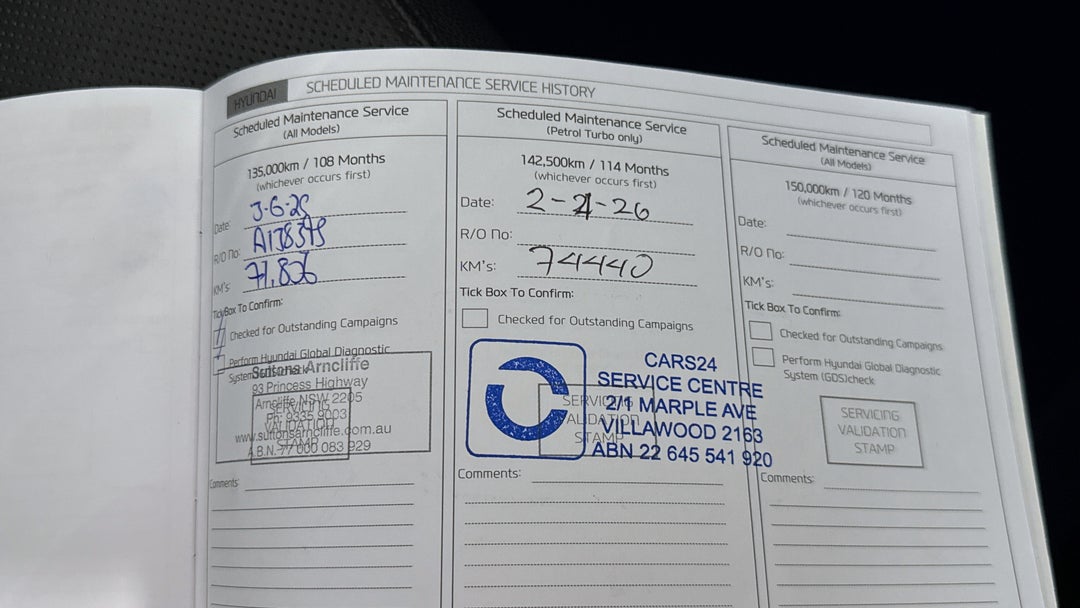 HYUNDAI
SCHEDULED MAINTENANCE SERVICE HISTORY
Scheduled Maintenance Service
(All Models)
135,000km / 108 Months
(whichever occurs first)
Date: 3-6-25
R/O No:
KM's: 71,826
Tick Box To Confirm:
Checked for Outstanding Campaigns
Perform Hyundai Global Diagnostic
System (GDS)check
Suttons Arncliffe
93 Princess Highway
Arncliffe NSW 2205
Ph: 9335 9003
www.suttonsarncliffe.com.au
A.B.N. 77 000 083 929
SERVICING
VALIDATION
STAMP
Comments:
Scheduled Maintenance Service
(Petrol Turbo only)
142,500km / 114 Months
(whichever occurs first)
Date: 2-21-26
R/O No:
KM's: 74440
Tick Box To Confirm:
Checked for Outstanding Campaigns
CARS24
SERVICE CENTRE
2/1 MARPLE AVE
VILLAWOOD 2163
ABN 22 645 541 920
SERVICING
VALIDATION
STAMP
Comments:
Scheduled Maintenance Service
(All Models)
150,000km / 120 Months
(whichever occurs first)
Date:
R/O No:
KM's:
Tick Box To Confirm:
Checked for Outstanding Campaigns
Perform Hyundai Global Diagnostic
System (GDS)check
SERVICING
VALIDATION
STAMP
Comments: